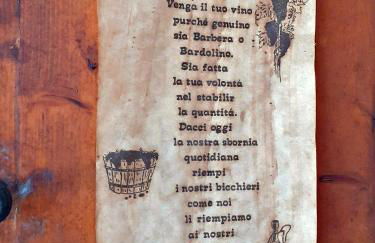 Venga il tuo vino
purché genuino
sia Barbera o
Bardolino.
Sia fatta
la tua volontá
nel stabilir
la quantitá.
Dacci oggi
la nostra sbornia
quotidiana
riempi
i nostri bicchieri
come noi
li riempiamo
ai nostri